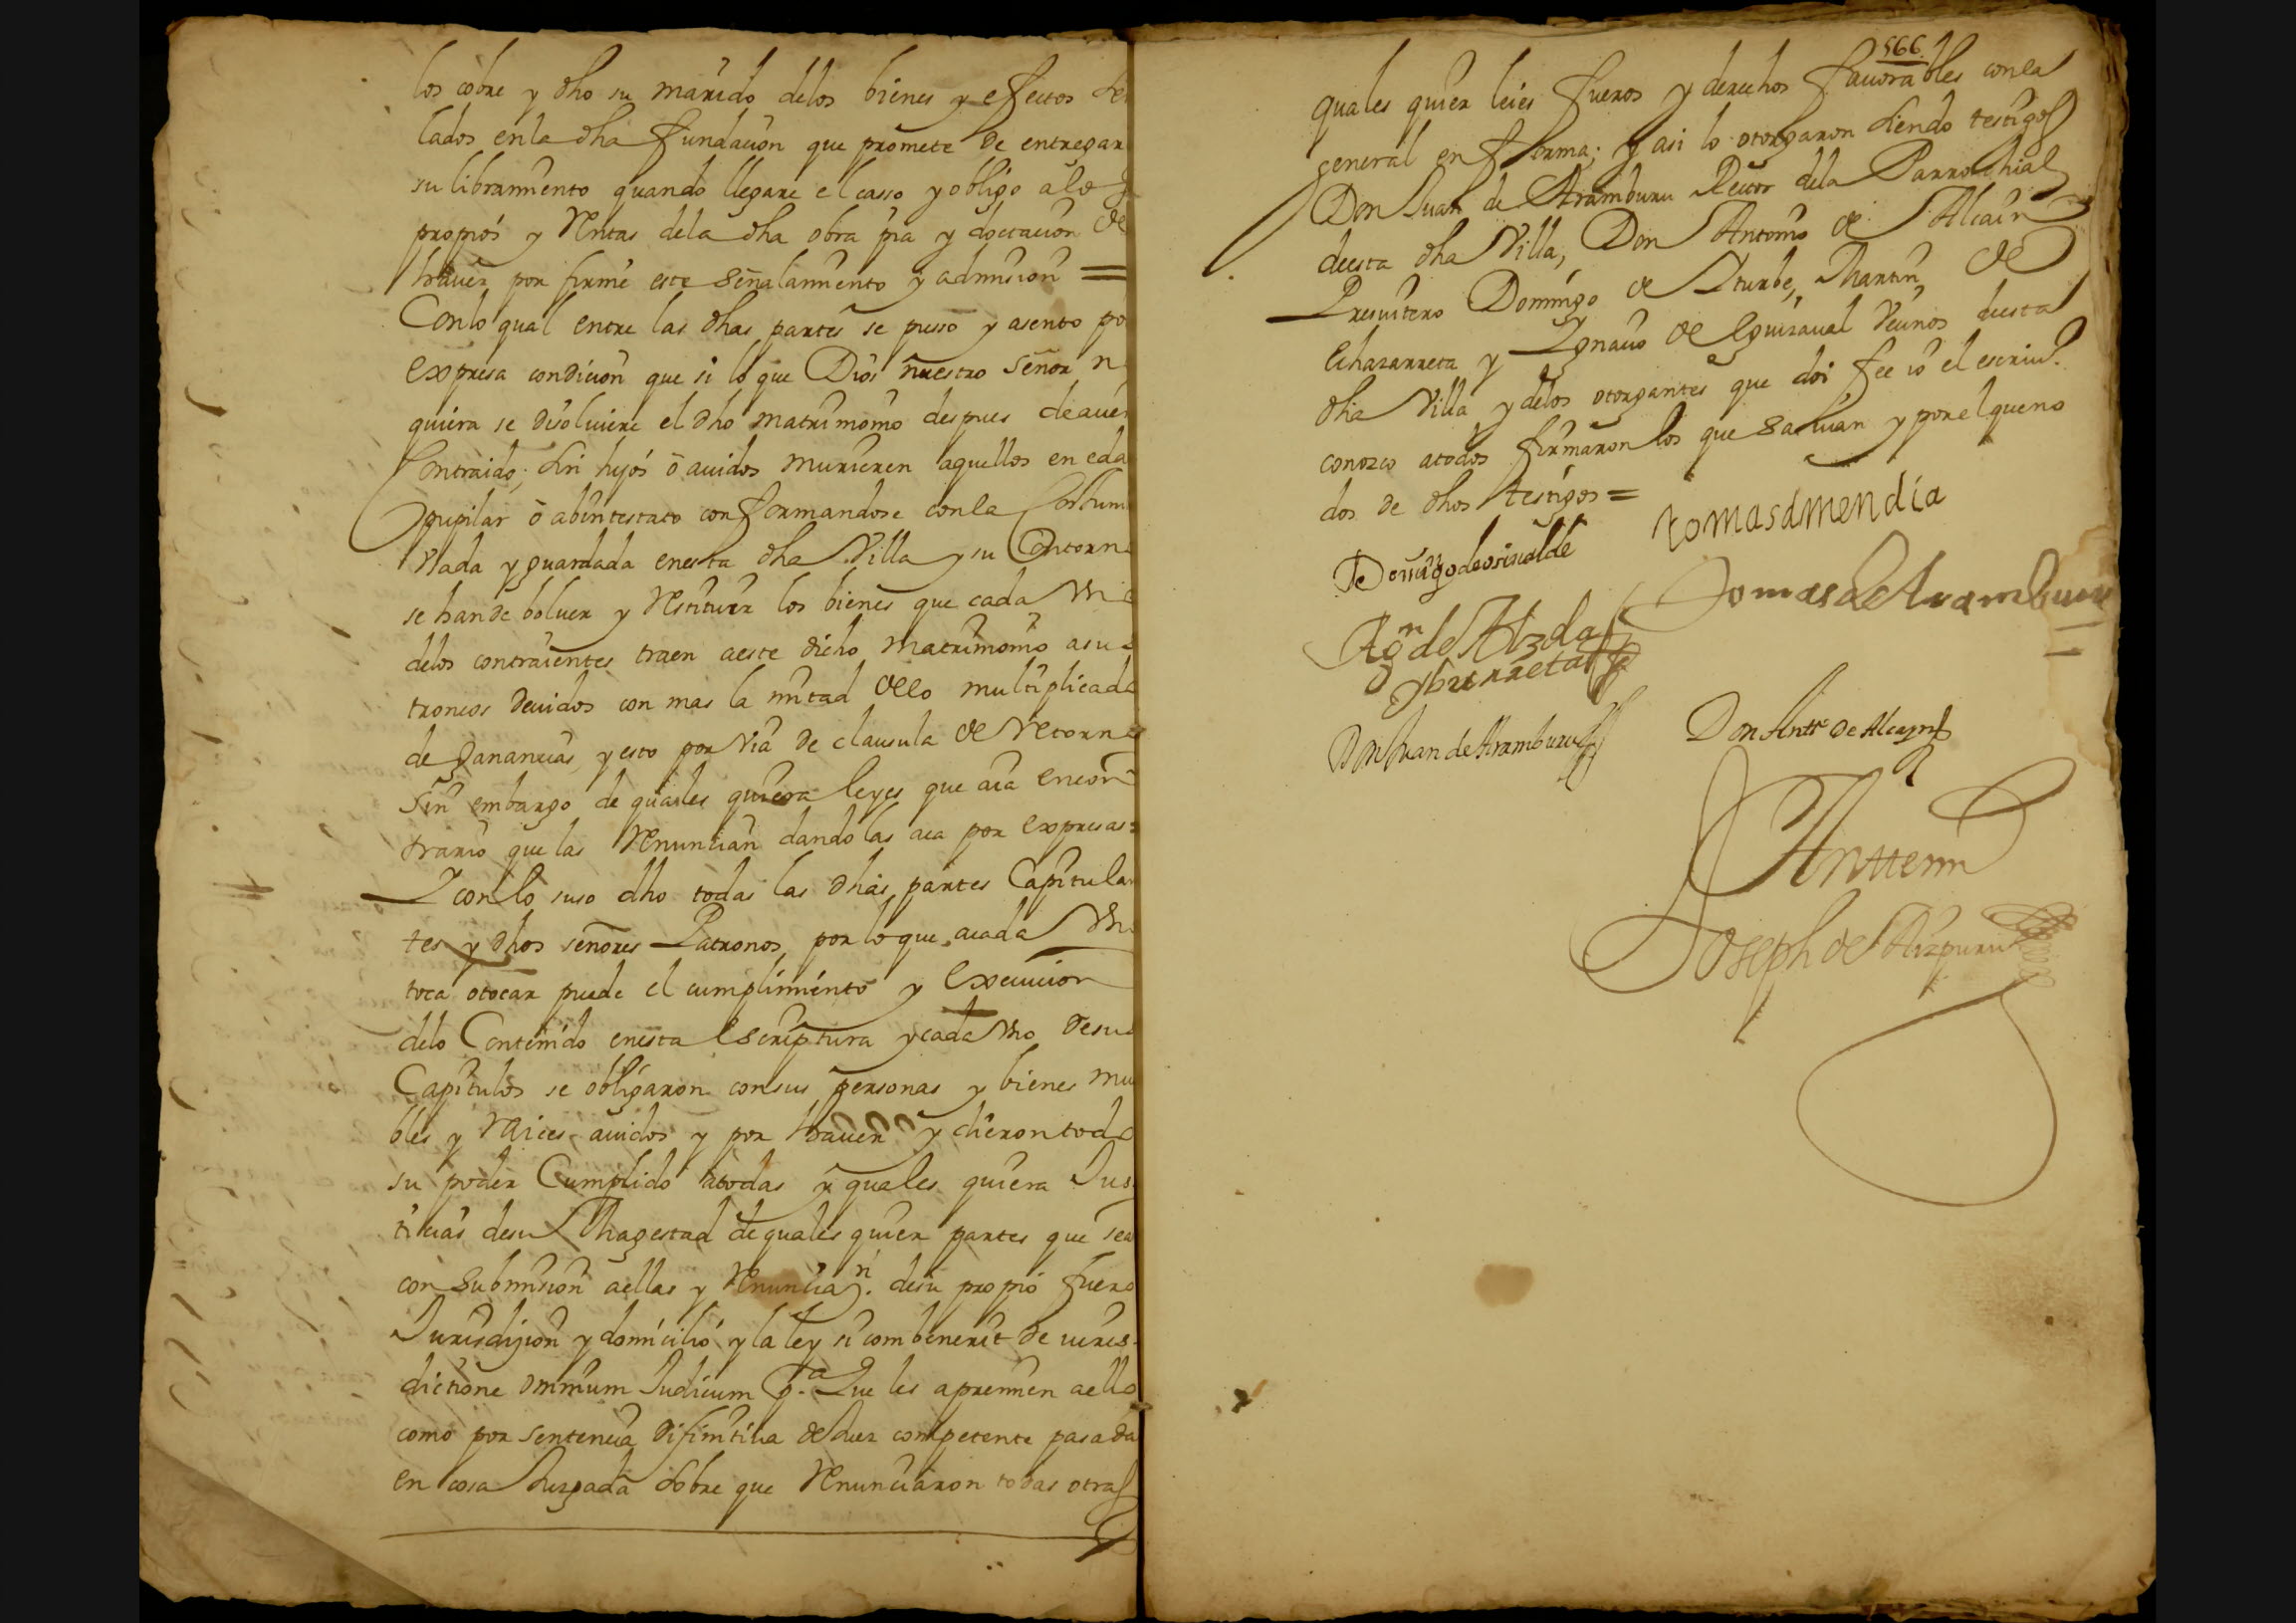 los cobre y dho su marido delos bienes y efectos
lados enla dha fundacion que promete de entregar
su libramiento quando llegare el casso y obligo a los
propios y Rentas dela dha obra pia y dottacion de
haver por firme este señalamiento y admission =
Conlo qual entre las dhas partes se pusso y asento po
expresa condicion que si lo que Dios nuestro señor n
quiera se disolviere el dho matrimonio despues de aver
Contraido; sin hijos o auidos murieren aquellos en eda
pupilar o abintestato conformandose conla Costum
Vsada y guardada enesta dha Villa y su Contorn
se hande bolver y Restituir los bienes que cada Vno
delos contraientes traen aeste dicho matrimonio asus
troncos devidos con mas la mitad dello multiplicado
de ganancias, y esto por via de clausula de Retorno
Sin embargo de quales quiera leyes que aia encon
trario que las Renuncian dando las aca por expresas
Y conlo suso dho todas las dhas partes Capitulan
tes y dhos señores Patronos, por lo que acada Vno
toca otocar puede el cumplimiento y execucion
delo Contenido enesta escriptura y cada Vno desus
Capitulos se obligaron consus personas y bienes mu
bles y Raices auidos y por haver y dieron todo
su poder Cumplido atodas y quales quiera Jus
ticias desu Magestad de quales quier partes que sea
con submision aellas y Renuncia.n desu propio fuero
Jurisdicion y domicilio y la ley si combenerit de iuris
dictione omnium Judicum p.a Que les apremien aello
como por sentencia difinitiua de Juez competente pasada
en cosa Juzgada sobre que Renunciaron todas otras
566.
quales quier leies fueros y derechos fauorables conla
general en forma; y asi lo otorgaron siendo testigos
Don Juan de Aramburu Rector dela Parrochial
deesta dha Villa, Don Antonio de Alcain
Presuitero Domingo de Yturbe, Martin de
Echazarreta y Ygnacio de Eguizaual Vecinos deesta
dha Villa y delos otorgantes que doi fee io el escriu.o
conozco atodos firmaron los que sauian y por el que no
dos de dhos testigos =
tomas dmendia
Tomas de Aramburu
Ag.n de Alzola
Yburreta
Don Juan de Aramburu
Don Antt.o De Alcayn
Anttemi
Joseph de Aizpuru